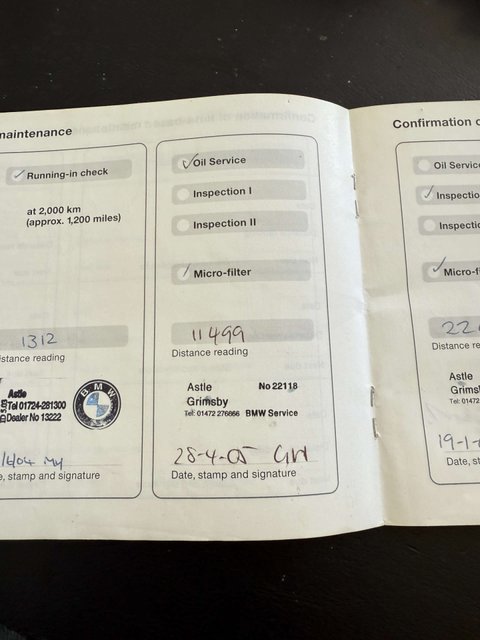 maintenance
Running-in check
at 2,000 km
(approx. 1,200 miles)
1312
istance reading
Astle
Tel 01724-281300
Dealer No 13222
BMW
/6/04 My
e, stamp and signature
Oil Service
Inspection I
Inspection II
Micro-filter
11499
Distance reading
Astle No 22118
Grimsby
Tel: 01472 276666 BMW Service
28-4-05 GW
Date, stamp and signature
Confirmation o
Oil Service
Inspectio
Inspectio
Micro-fi
22
Distance re
Astle
Grimsb
Tel: 01472
19-1-
Date, st